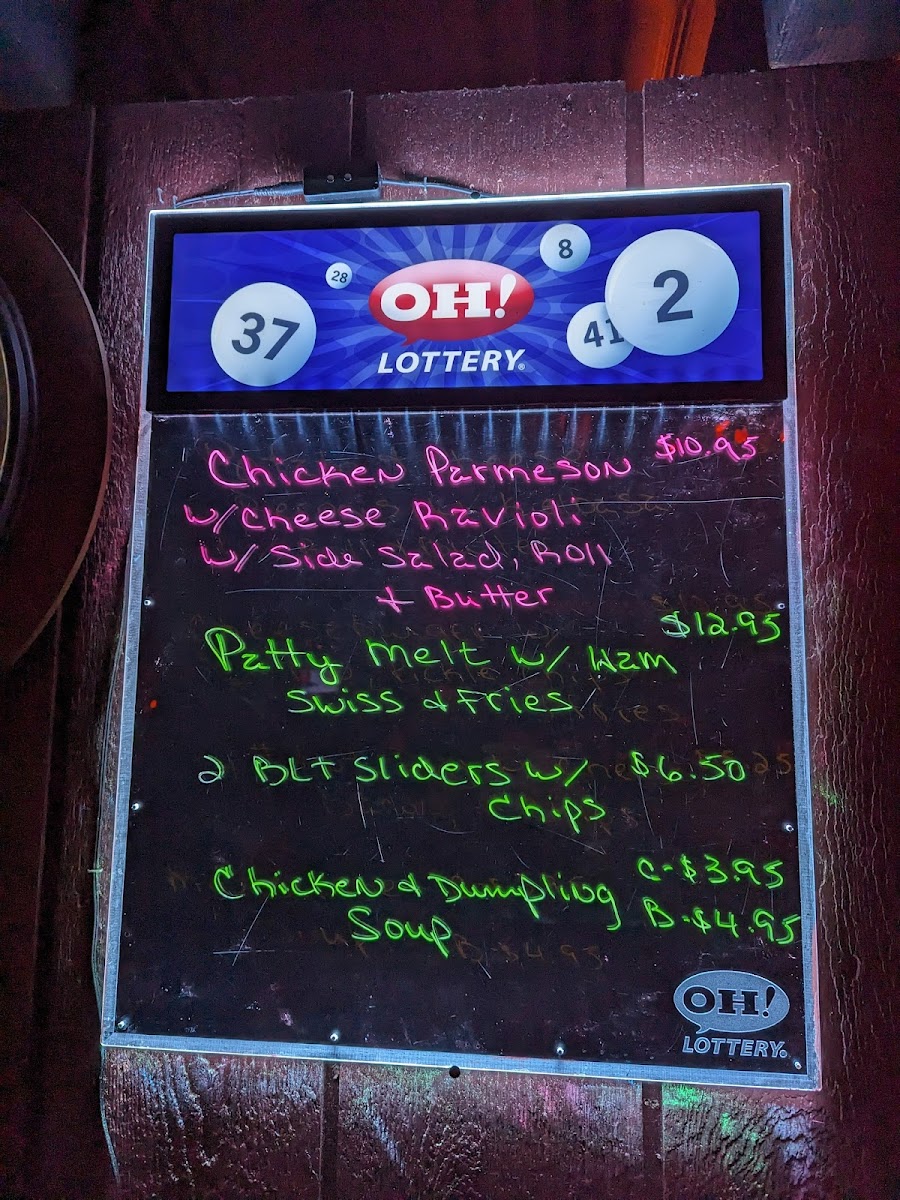 37
28
OH!
LOTTERY®
8
41
2
Chicken Parmeson $10.95
w/cheese Ravioli
w/ Side Salad, Roll
+ Butter
$12.95
Patty melt w/ Ham
Swiss & Fries
2 BLT Sliders w/ $6.50
Chips
Chicken & Dumpling C-$3.95
Soup B-$4.95
OH!
LOTTERY®